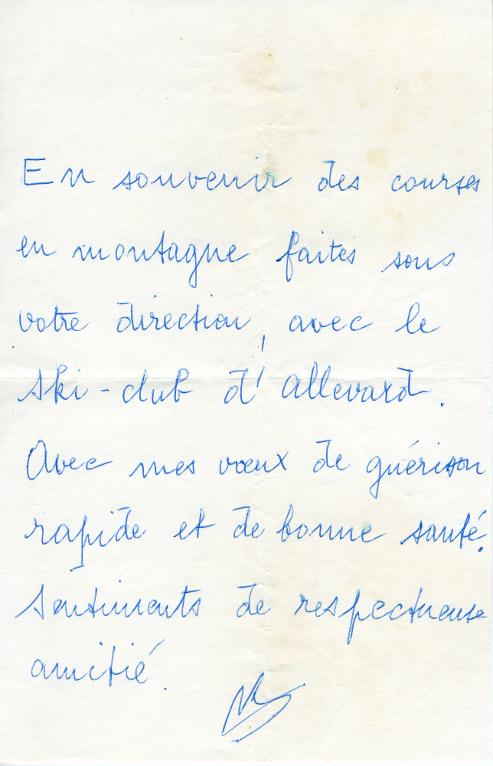 En souvenir des courses
en montagne faites sous
votre direction, avec le
ski-club d'allevard.
Avec mes vœux de guérison
rapide et de bonne santé.
Sentiments de respectueuse
amitié.